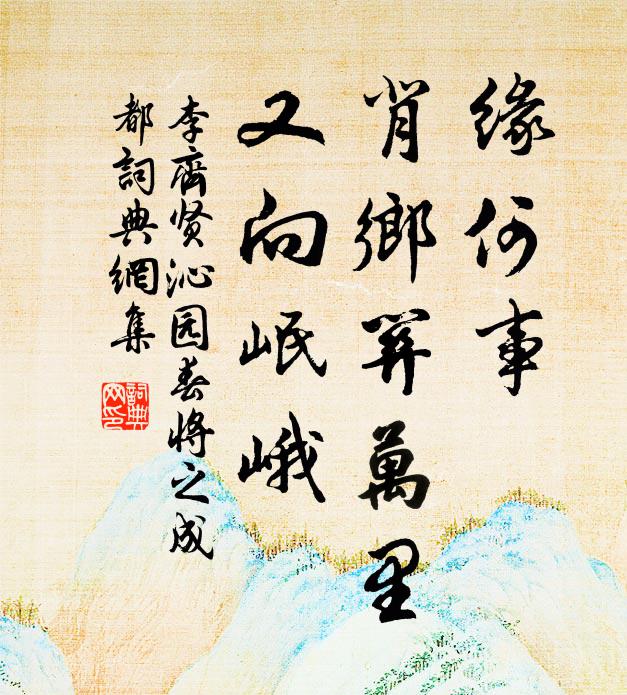 緣何事
背鄉關萬里
又向岷峨
李齊贤沁园春將之成
都詞典網集
詞典
网印